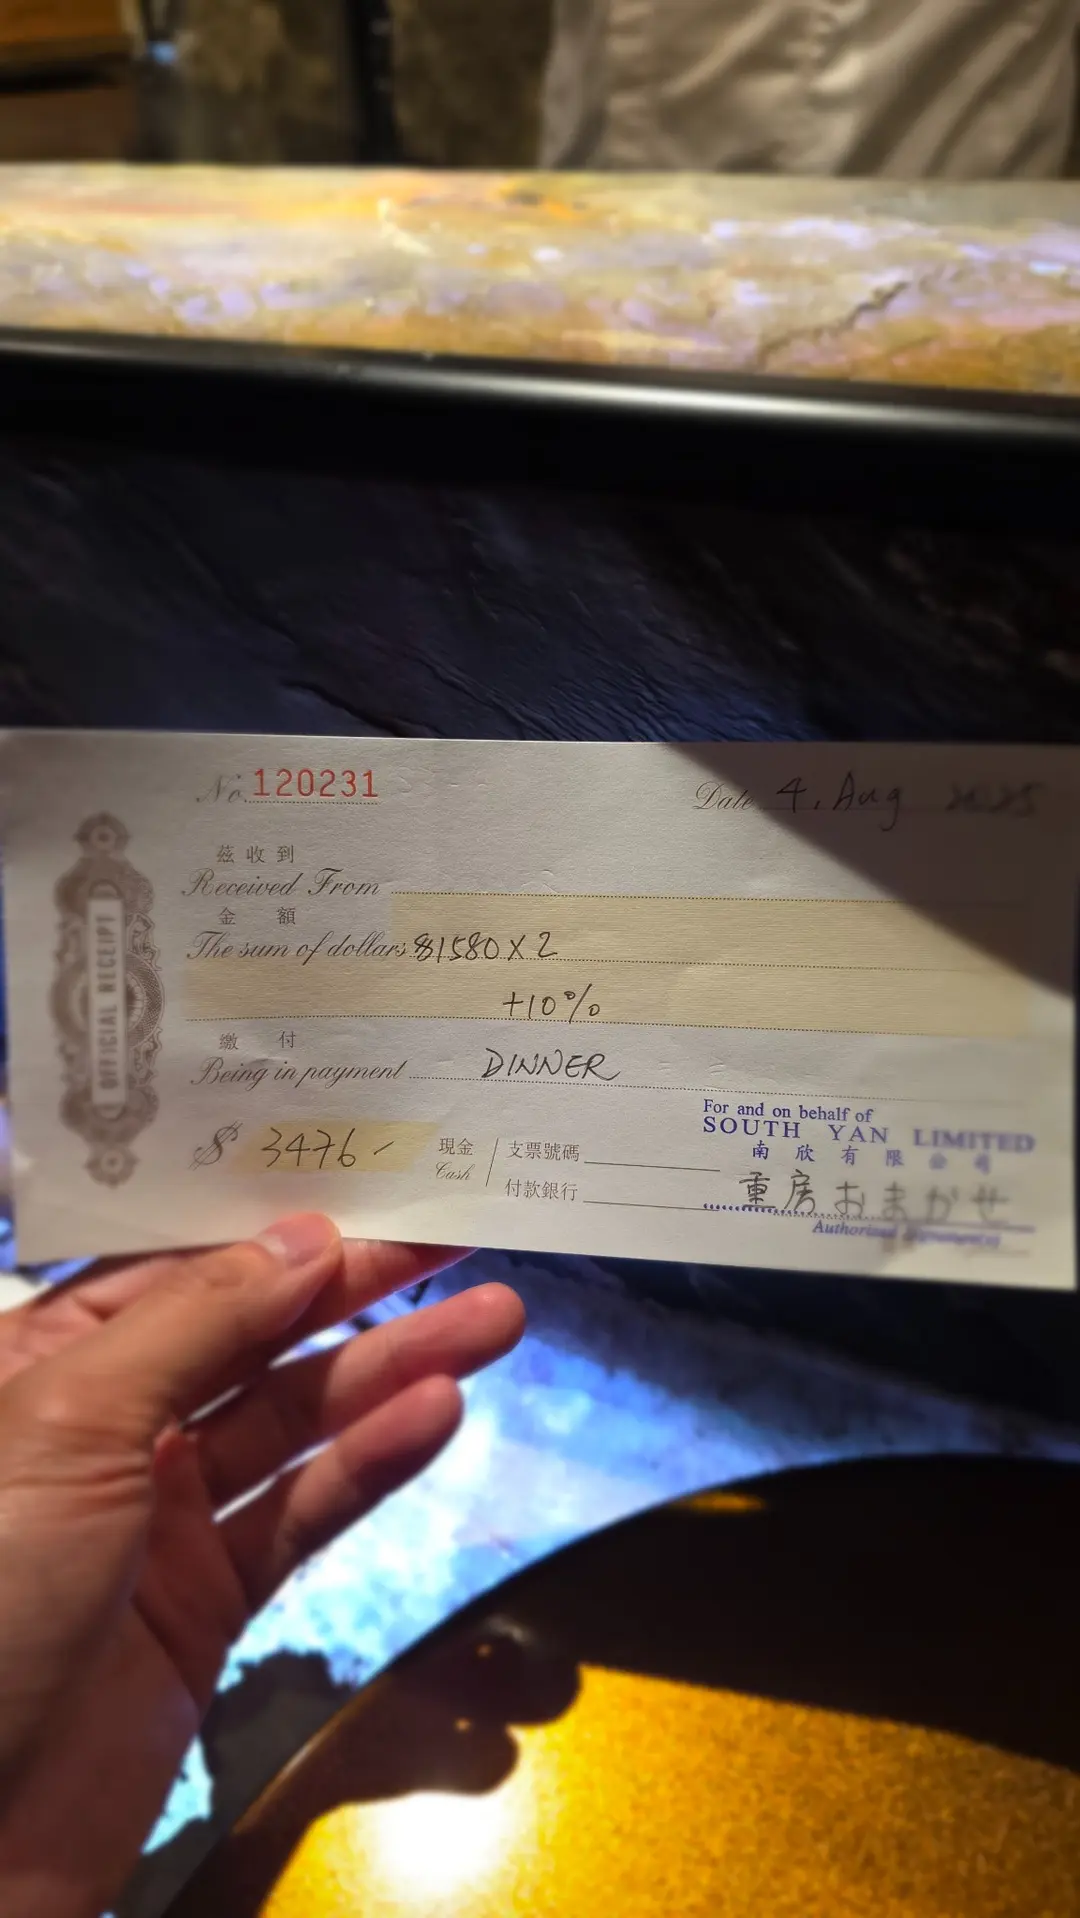 No. 120231
Date 4, Aug 2025
茲收到
Received From
金額
The sum of dollars $1580 X 2
+10%
繳付
Being in payment DINNER
OFFICIAL RECEIPT
$ 3476-
現金
Cash
支票號碼
付款銀行
For and on behalf of
SOUTH YAN LIMITED
南欣有限公司
重房おまかせ
Authorized Signature(s)